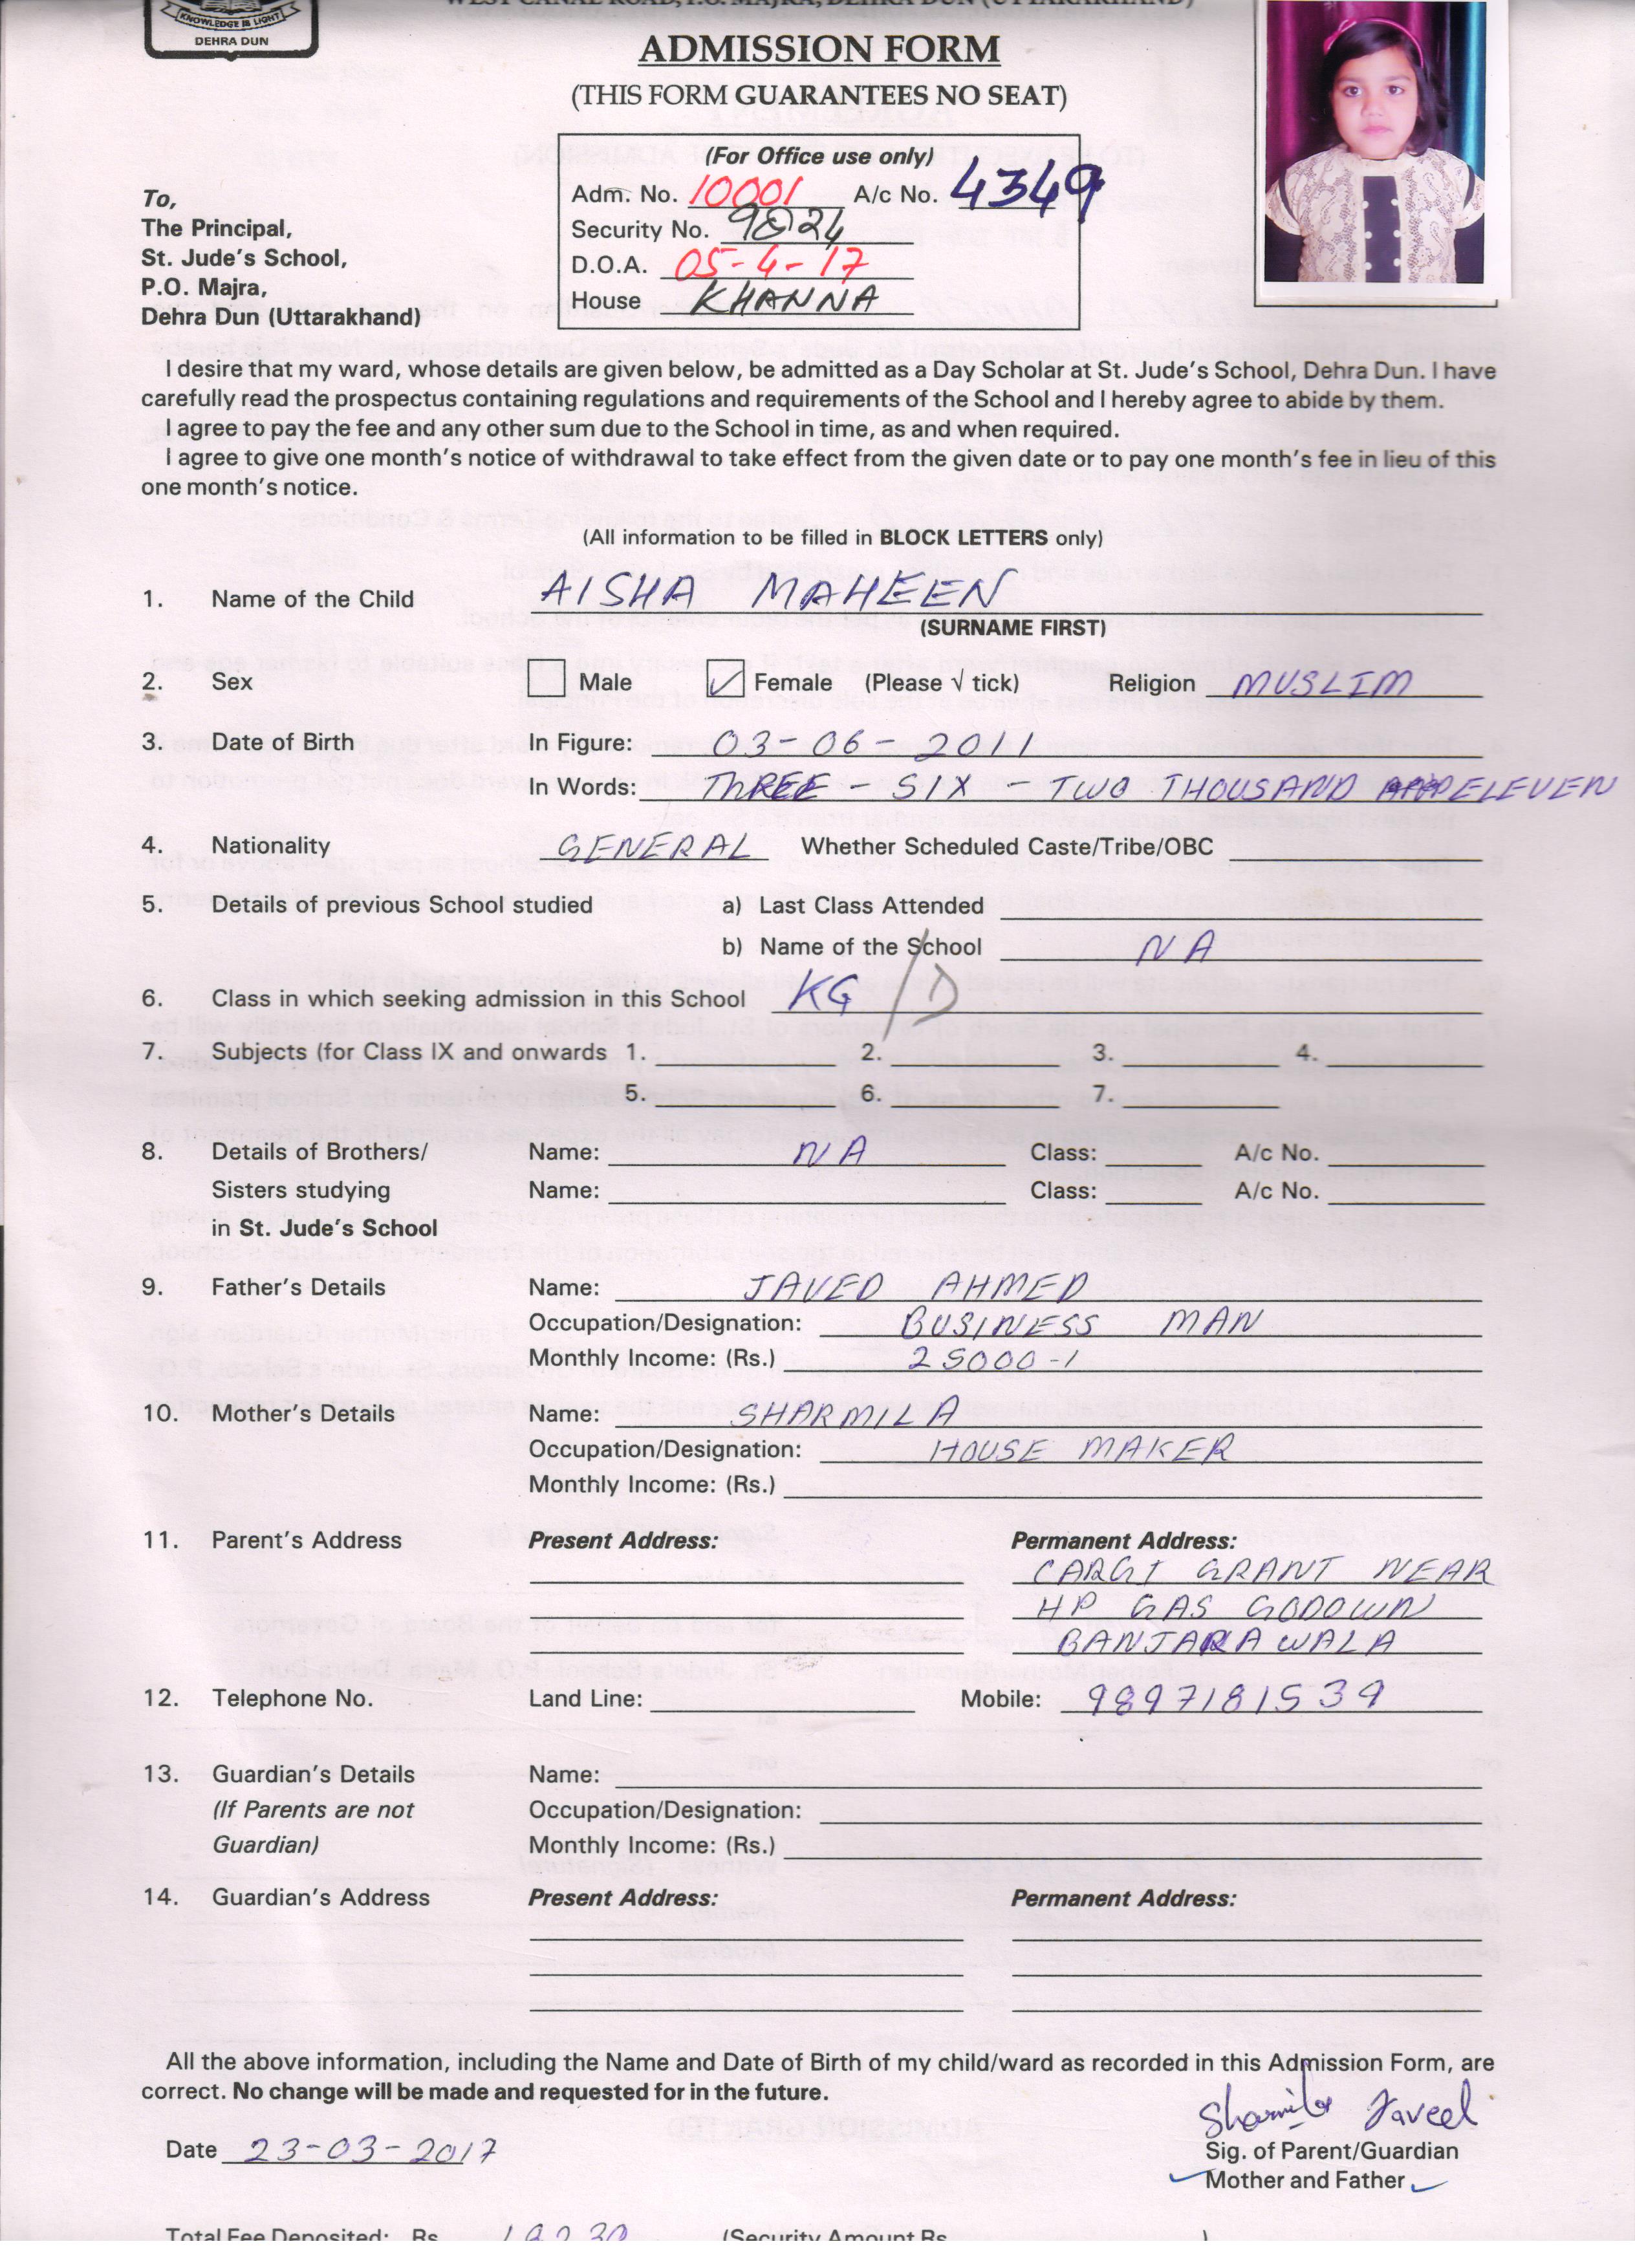 KNOWLEDGE IS LIGHT
DEHRA DUN
WEST CANAL ROAD, P.O. MAJRA, DEHRA DUN (UTTARAKHAND)
ADMISSION FORM
(THIS FORM GUARANTEES NO SEAT)
(For Office use only)
Adm. No. 10001 A/c No. 4349
Security No. 9824
D.O.A. 05-4-17
House KHANNA
To,
The Principal,
St. Jude's School,
P.O. Majra,
Dehra Dun (Uttarakhand)
I desire that my ward, whose details are given below, be admitted as a Day Scholar at St. Jude's School, Dehra Dun. I have
carefully read the prospectus containing regulations and requirements of the School and I hereby agree to abide by them.
I agree to pay the fee and any other sum due to the School in time, as and when required.
I agree to give one month's notice of withdrawal to take effect from the given date or to pay one month's fee in lieu of this
one month's notice.
(All information to be filled in BLOCK LETTERS only)
1. Name of the Child AISHA MAHEEN
(SURNAME FIRST)
2. Sex Male ✓ Female (Please √ tick) Religion MUSLIM
3. Date of Birth In Figure: 03-06-2011
In Words: THREE - SIX - TWO THOUSAND ELEVEN
4. Nationality GENERAL Whether Scheduled Caste/Tribe/OBC
5. Details of previous School studied a) Last Class Attended
b) Name of the School NA
6. Class in which seeking admission in this School KG /D
7. Subjects (for Class IX and onwards 1. 2. 3. 4.
5. 6. 7.
8. Details of Brothers/ Name: NA Class: A/c No.
Sisters studying Name: Class: A/c No.
in St. Jude's School
9. Father's Details Name: JAVED AHMED
Occupation/Designation: BUSINESS MAN
Monthly Income: (Rs.) 25000-/
10. Mother's Details Name: SHARMILA
Occupation/Designation: HOUSE MAKER
Monthly Income: (Rs.)
11. Parent's Address Present Address: Permanent Address:
CARGI GRANT NEAR
HP GAS GODOWN
BANJARAWALA
12. Telephone No. Land Line: Mobile: 9897181539
13. Guardian's Details Name:
(If Parents are not Occupation/Designation:
Guardian) Monthly Income: (Rs.)
14. Guardian's Address Present Address: Permanent Address:
All the above information, including the Name and Date of Birth of my child/ward as recorded in this Admission Form, are
correct. No change will be made and requested for in the future.
Sharmila Javed
Date 23-03-2017 Sig. of Parent/Guardian
Mother and Father
Total Fee Deposited: Rs. (Security Amount Rs. )